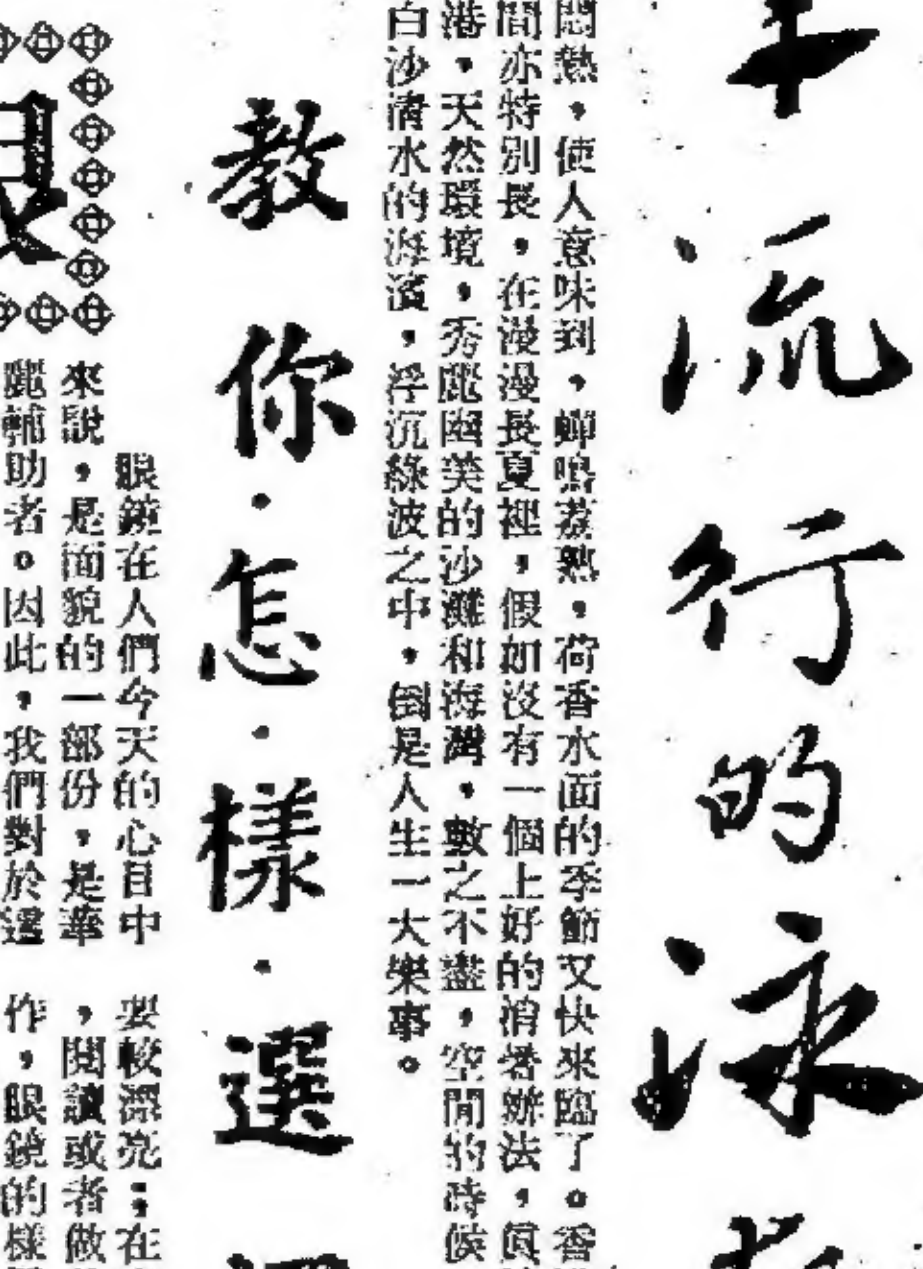 流行的泳
悶熱，使人意味到，蟬鳴荔熟，荷香水面的季節又快來臨了。香
間亦特別長，在漫漫長夏裡，假如沒有一個上好的消暑辦法，眞
港，天然環境，秀麗幽美的沙灘和海灣，數之不盡，空閒的時候
白沙清水的海濱，浮沉綠波之中，倒是人生一大樂事。
教你·怎·樣·選
眼鏡在人們今天的心目中
來說，是面貌的一部份，是華
麗輔助者。因此，我們對於選
要較漂亮；在
，閱讀或者做
作，眼鏡的樣